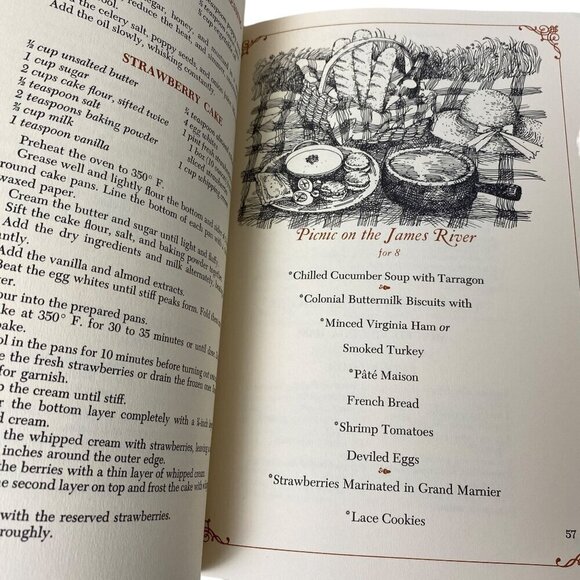 vinegar, honey, and
reduce the heat, and
Add the celery salt, poppy seeds, and onion
Add the oil slowly, whisking constantly.
STRAWBERRY CAKE
½ cup unsalted butter
1 cup sugar
2 cups cake flour, sifted twice
½ teaspoon salt
2 teaspoons baking powder
¾ cup milk
1 teaspoon vanilla
¼ teaspoon almond
4 egg whites
1 pint fresh
1 box
sliced
1 cup whipping
Preheat the oven to 350° F.
Grease well and lightly flour the bottom and sides
round cake pans. Line the bottom of each pan with
waxed paper.
Cream the butter and sugar until light and fluffy.
Sift the cake flour, salt, and baking powder together
Add the dry ingredients and milk alternately, beating
antly.
Add the vanilla and almond extracts.
Beat the egg whites until stiff peaks form. Fold them
ter.
our into the prepared pans.
ke at 350° F. for 30 to 35 minutes or until done.
bake.
ol in the pans for 10 minutes before turning out
e the fresh strawberries or drain the frozen ones
for garnish.
p the cream until stiff.
r the bottom layer completely with a ¾-inch
d cream.
the whipped cream with strawberries, leaving
inches around the outer edge.
the berries with a thin layer of whipped cream.
he second layer on top and frost the cake with
with the reserved strawberries.
roughly.
Picnic on the James River
for 8
*Chilled Cucumber Soup with Tarragon
*Colonial Buttermilk Biscuits with
*Minced Virginia Ham or
Smoked Turkey
*Pâté Maison
French Bread
*Shrimp Tomatoes
Deviled Eggs
*Strawberries Marinated in Grand Marnier
*Lace Cookies
57